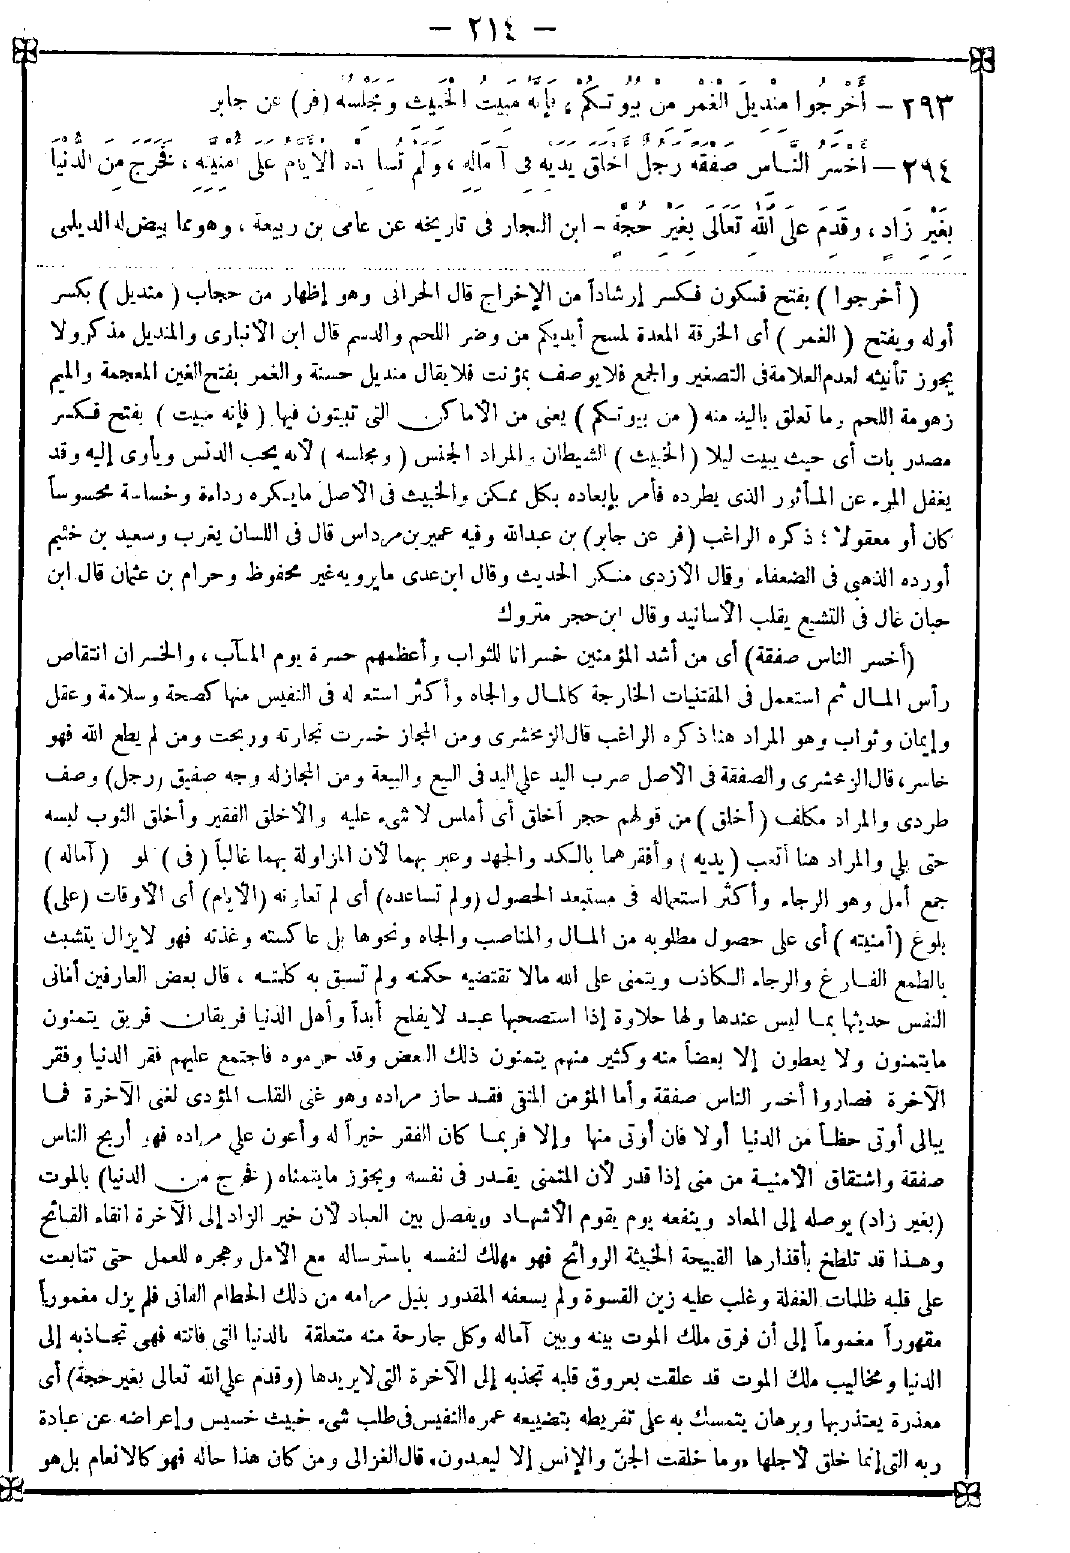 — ٢١٤ —
٢٩٣ — أَخْرِجُوا مِنْدِيلَ الْغَمَرِ مِنْ بُيُوتِكُمْ، فَإِنَّهُ مَبِيتُ الْخَبِيثِ وَمَجْلِسُهُ (فر) عن جابر
٢٩٤ — أَخْسَرُ النَّاسِ صَفْقَةً رَجُلٌ أَخْلَقَ يَدَيْهِ فِى آمَالِهِ، وَلَمْ تُسَاعِدْهُ الْأَيَّامُ عَلَى أُمْنِيَّتِهِ، فَخَرَجَ مِنَ الدُّنْيَا
بِغَيْرِ زَادٍ، وَقَدِمَ عَلَى اللّٰهِ تَعَالَى بِغَيْرِ حُجَّةٍ - ابن النجار فى تاريخه عن عامر بن ربيعة، وهو مما بيض له الديلمى
( أخرجوا ) بفتح فسكون فكسر إرشاداً من الإخراج قال الحرانى وهو إظهار من حجاب ( منديل ) بكسر
أوله ويفتح ( الغمر ) أى الخرقة المعدة لمسح أيديكم من وضر اللحم والدسم قال ابن الأنبارى والمنديل مذكر ولا
يجوز تأنيثه لعدم العلامة فى التصغير والجمع فلا يوصف بمؤنث فلا يقال منديل حسنة والغمر بفتح الغين المعجمة والميم
زهومة اللحم وما تعلق باليد منه ( من بيوتكم ) يعنى من الأماكن التى تبيتون فيها ( فإنه مبيت ) بفتح فكسر
مصدر بات أى حيث يبيت ليلا ( الخبيث ) الشيطان والمراد الجنس ( ومجلسه ) لأنه يحب الدنس ويأوى إليه وقد
يغفل المرء عن المأثور الذى يطرده فأمر بإبعاده بكل ممكن والخبيث فى الأصل ما يكره رداءة وخساسة محسوساً
كان أو معقولا؛ ذكره الراغب (فر عن جابر) بن عبد الله وفيه عمير بن مرداس قال فى اللسان يغرب وسعيد بن خثيم
أورده الذهبى فى الضعفاء وقال الأزدى منكر الحديث وقال ابن عدى ما يرويه غير محفوظ وحرام بن عثمان قال ابن
حبان غال فى التشيع يقلب الأسانيد وقال ابن حجر متروك
(أخسر الناس صفقة) أى من أشد المؤمنين خسرانا للثواب وأعظمهم حسرة يوم المآب، والخسران انتقاص
رأس المال ثم استعمل فى المقتنيات الخارجة كالمال والجاه وأكثر استعماله فى النفيس منها كصحة وسلامة وعقل
وإيمان وثواب وهو المراد هنا ذكره الراغب قال الزمخشرى ومن المجاز خسرت تجارته وربحت ومن لم يطع الله فهو
خاسر، قال الزمخشرى والصفقة فى الأصل ضرب اليد على اليد فى البيع والبيعة ومن المجاز له وجه صفيق (رجل) وصف
طردى والمراد مكلف (أخلق) من قولهم حجر أخلق أى أملس لا شىء عليه والأخلق الفقير وأخلق الثوب لبسه
حتى بلى والمراد هنا أتعب (يديه) وأفقرهما بالكد والجهد وعبر بهما لأن المزاولة بهما غالباً (فى) بلوغ (آماله)
جمع أمل وهو الرجاء وأكثر استعماله فى مستبعد الحصول (ولم تساعده) أى لم تعاونه (الأيام) أى الأوقات (على)
بلوغ (أمنيته) أى على حصول مطلوبه من المال والمناصب والجاه ونحوها بل عاكسته وغذته فهو لا يزال يتشبث
بالطمع الفارغ والرجاء الكاذب ويتمنى على الله مالا تقتضيه حكمته ولم تسبق به كلمته، قال بعض العارفين أمانى
النفس حديثها بما ليس عندها ولها حلاوة إذا استصحبها عبد لا يفلح أبداً وأهل الدنيا فريقان فريق يتمنون
ما يتمنون ولا يعطون إلا بعضاً منه وكثير منهم يتمنون ذلك البعض وقد حرموه فاجتمع عليهم فقر الدنيا وفقر
الآخرة فصاروا أخسر الناس صفقة وأما المؤمن المتقى فقد حاز مراده وهو غنى القلب المؤدى لغنى الآخرة فما
يبالى أوتى حظاً من الدنيا أولا فان أوتى منها وإلا فربما كان الفقر خيراً له وأعون على مراده فهو أربح الناس
صفقة واشتقاق الأمنية من منى إذا قدر لأن المتمنى يقدر فى نفسه ويجوّز ما يتمناه (فخرج من الدنيا) بالموت
(بغير زاد) يوصله إلى المعاد وينفعه يوم يقوم الأشهاد ويفصل بين العباد لأن خير الزاد إلى الآخرة اتقاء القبائح
وهذا قد تلطخ بأقذارها القبيحة الخبيثة الروائح فهو مهلك لنفسه باسترساله مع الأمل وهجره للعمل حتى تتابعت
على قلبه ظلمات الغفلة وغلب عليه زين القسوة ولم يسعفه المقدور بنيل مرامه من ذلك الحطام الفانى فلم يزل مغموراً
مقهوراً مغموماً إلى أن فرق ملك الموت بينه وبين آماله وكل جارحة منه متعلقة بالدنيا التى فاتته فهى تجاذبه إلى
الدنيا ومخاليب ملك الموت قد علقت بعروق قلبه تجذبه إلى الآخرة التى لا يريدها (وقدم على الله تعالى بغير حجة) أى
معذرة يعتذر بها وبرهان يتمسك به على تفريطه بتضييعه عمره النفيس فى طلب شىء خبيث خسيس وإعراضه عن عبادة
ربه التى إنما خلق لأجلها «وما خلقت الجن والإنس إلا ليعبدون» قال الغزالى ومن كان هذا حاله فهو كالأنعام بل هو